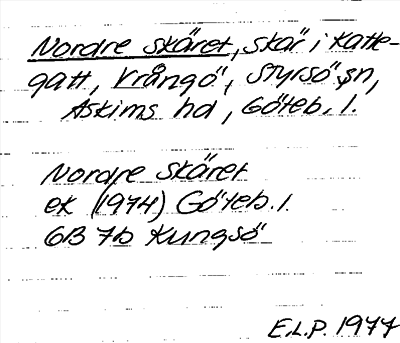 Nordre skäret, skär i Katte-
gatt, Vrångö, Styrsö sn,
Askims hd, Göteb. l.
Nordre skäret
ek (1974) Göteb. l.
6B 7b Kungsö
E.L.P. 1977